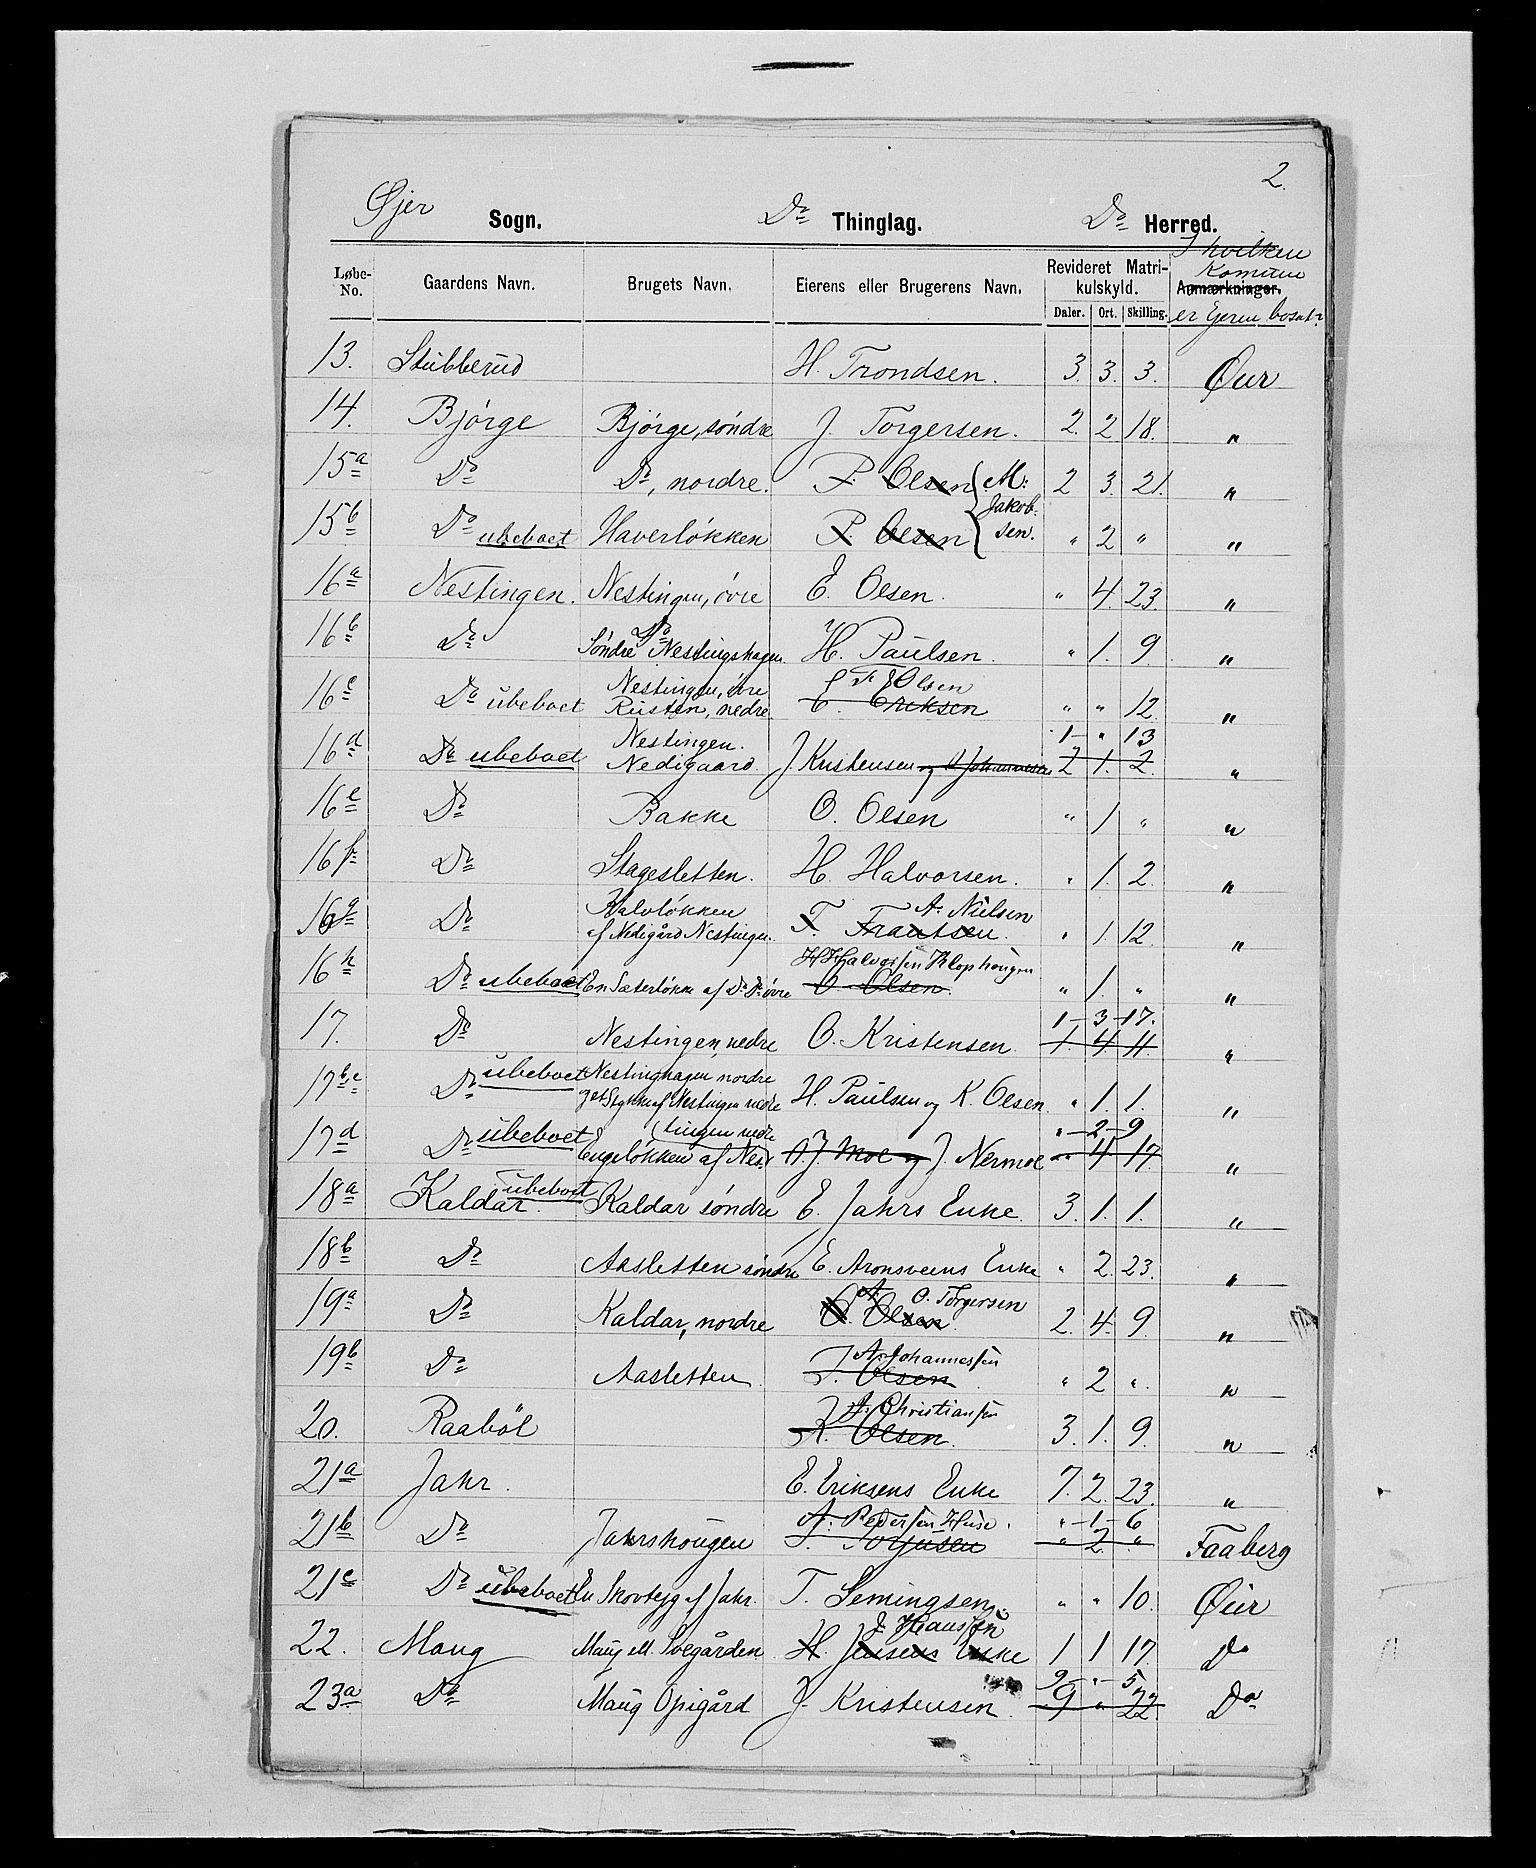 2.
Øjer Sogn. Do Thinglag. Do Herred.
I hvilken
Komune
Løbe-No. Gaardens Navn. Brugets Navn. Eierens eller Brugerens Navn. Revideret Matrikulskyld. Anmærkninger.
Daler. Ort. Skilling. er Ejeren bosat?
13. Stubberud H. Trondsen. 3. 3. 3. Øier
14. Bjørge Bjørge, søndre J. Torgersen. 2. 2 18. "
15a Do Do, nordre. P. Olsen { M. 2 3. 21. "
Jakob-
15b Do ubeboet Haverløkken P. Olsen sen. " 2 " "
16a Nestingen. Nestingen, øvre E. Olsen. " 4. 23 "
16b Do Søndre Do Nestingshagen H. Paulsen. " 1. 9. "
Nestingen, øvre Olsen
16c Do ubeboet Rusten, nedre E. Eriksen " " 12 "
Nestingen. 1 - " 13
16d Do ubeboet Nedigaard. J. Kristensen og O Johannesen 2 1. 2. "
16e Do Bakke O. Olsen " 1 " "
16f Do Stagesletten. H. Halvorsen. " 1. 2. "
Kalvløkken A. Nielsen
16g Do af Nedigård Nestingen. T. Frantsen. " 1. 12. "
H Halvorsen Klophougen
16h Do ubeboet En Sæterløkke af Do Do øvre O Olsen. " 1. " "
1 - 3 - 17.
17. Do Nestingen, nedre O. Kristensen 1. 4 11. "
ubeboet Nestinghagen nordre
17b,c Do af Nestingen nedre H. Paulsen og K. Olsen. " 1. 1. "
ubeboet (tingen nedre " - 2 - 9
17d Do Engeløkken af Nes- O. J. Moe og J. Nermoe " 4 17. "
ubeboet
18a Kaldar. Kaldar søndre E. Jahrs Enke. 3. 1. 1. "
18b Do Aasletten søndre E. Aronsveens Enke " 2. 23. "
O. Torgersen
19a Do Kaldar, nordre O. Olsen 2. 4. 9. "
A. Johannessen
19b Do Aasletten J. Olsen " 2 ". "
J. Christiansen
20. Raabøl K. Olsen. 3. 1. 9. "
21a Jahr. E. Eriksens Enke 7. 2. 23. "
A. Pedersen Huse. " - 1 - 6
21b Do Jahrshougen T. Torjusen " 2 " Faaberg
21c Do ubeboet En Skovteig af Jahr. T. Semingsen. " " 10. Øier
J. Hanssen
22. Maug Maug m. Ivegården H. Jensens Enke 1 1 17. Do
9 - " - 5
23a Do Maug Opigård J. Kristensen. 9 " 22. Do